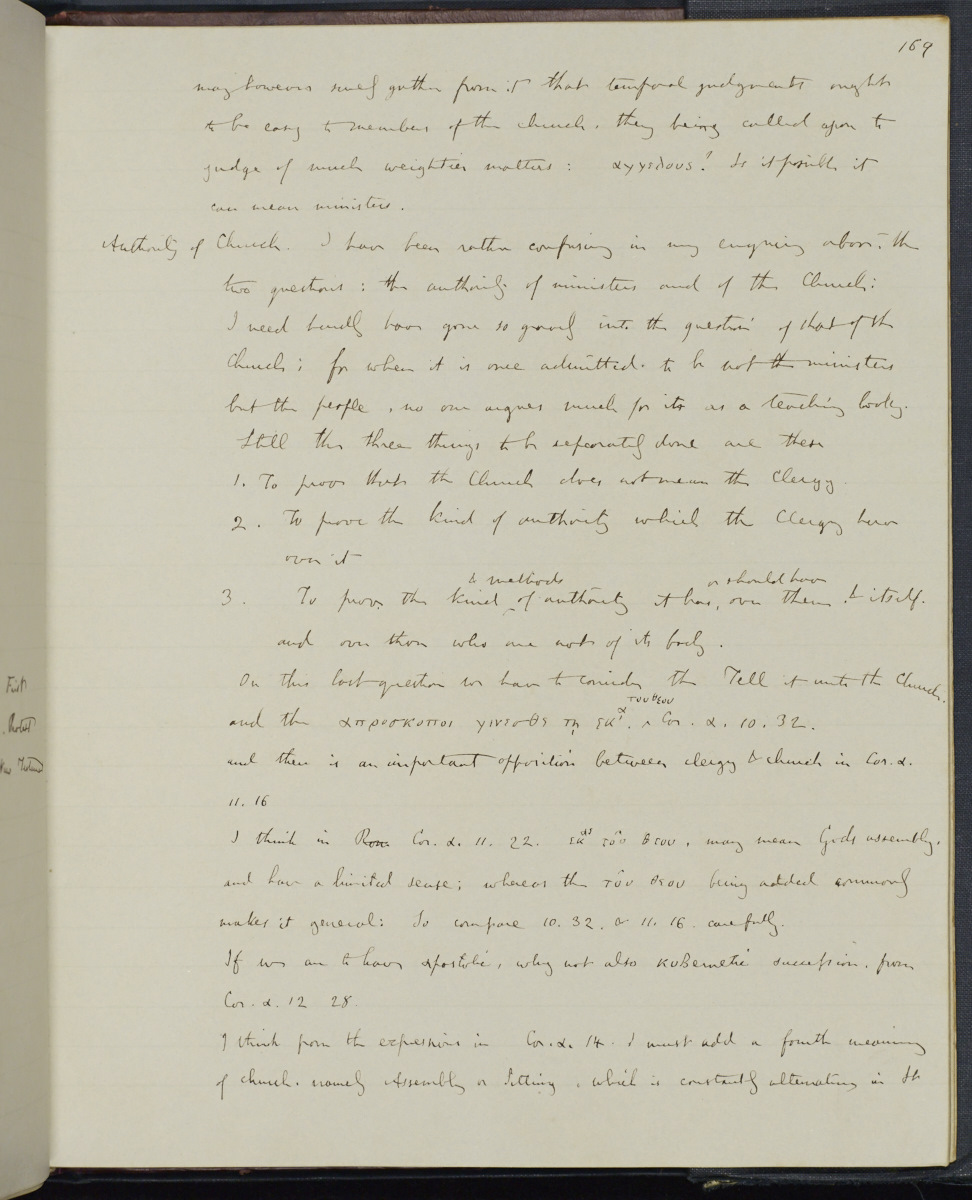 169
may however surely gather from it that temporal judgments ought
to be easy to members of the church, they being called upon to
judge of much weightier matters: αγγελους? Is it possible it
can mean ministers.
Authority of Church. I have been rather confusing in my enquiry above, the
two questions: the authority of ministers and of the Church:
I need hardly have gone so gravely into the question of that of the
Church; for when it is once admitted to be not the ministers
but the people, no one argues much for its as a teaching body.
Still the three things to be separately done are these
1. To prove that the Church does not mean the Clergy.
2. To prove the kind of authority which the Clergy have
over it
& methods or should have
3. To prove the kind of authority it has, over them & itself.
and over those who are not of its body.
On this last question we have to consider the Tell it unto the Church.
του θεου
and the απροσκοποι γινεσθε τη εκα. ^ Cor. α. 10. 32.
and there is an important opposition between clergy & church in Cor. α.
11. 16
I think in Rom Cor. α. 11. 22. εκας του θεου, may mean Gods assembly,
and have a limited sense; whereas the του θεου being added commonly
makes it general: So compare 10. 32. & 11. 16. carefully.
If we are to have apostolic, why not also κυβernetic succession, from
Cor. α. 12 28.
I think from the expressions in Cor. α. 14. I must add a fourth meaning
of church. namely Assembly or Sitting, which is constantly alternating in the
First